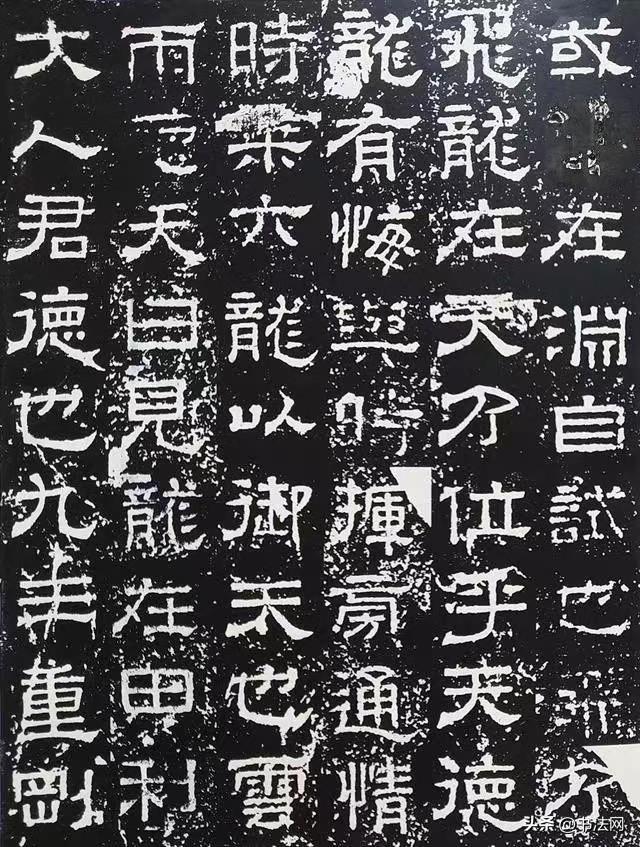 或在淵自試也
飛龍在天乃位乎天德
龍有悔與時揮旁通情
時乘六龍以御天也雲
雨天曰見龍在田利
大人君德也九重剛
头条@书法网